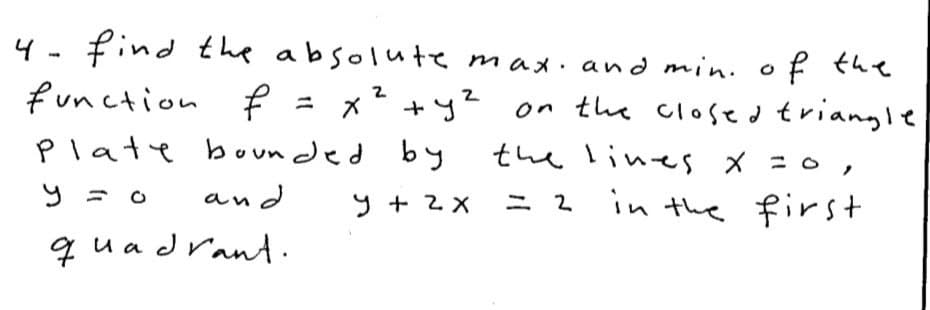 4 - find the absolute max. and min. of the
function f = x² + y² on the closed triangle
plate bounded by the lines x = 0,
y = 0 and y + 2x = 2 in the first
quadrant.